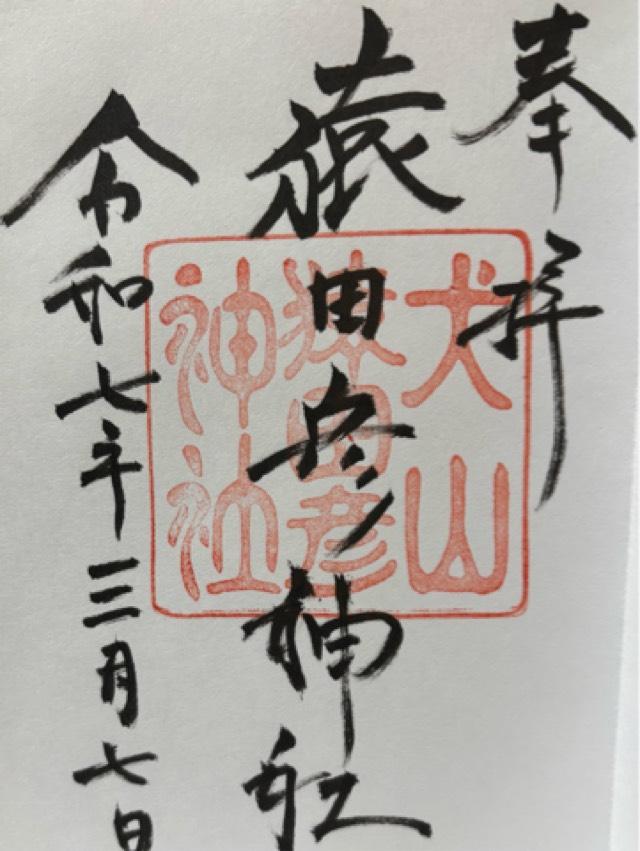 奉拝
猿田彦神社
令和七年三月七日
犬山
猿田彦
神社